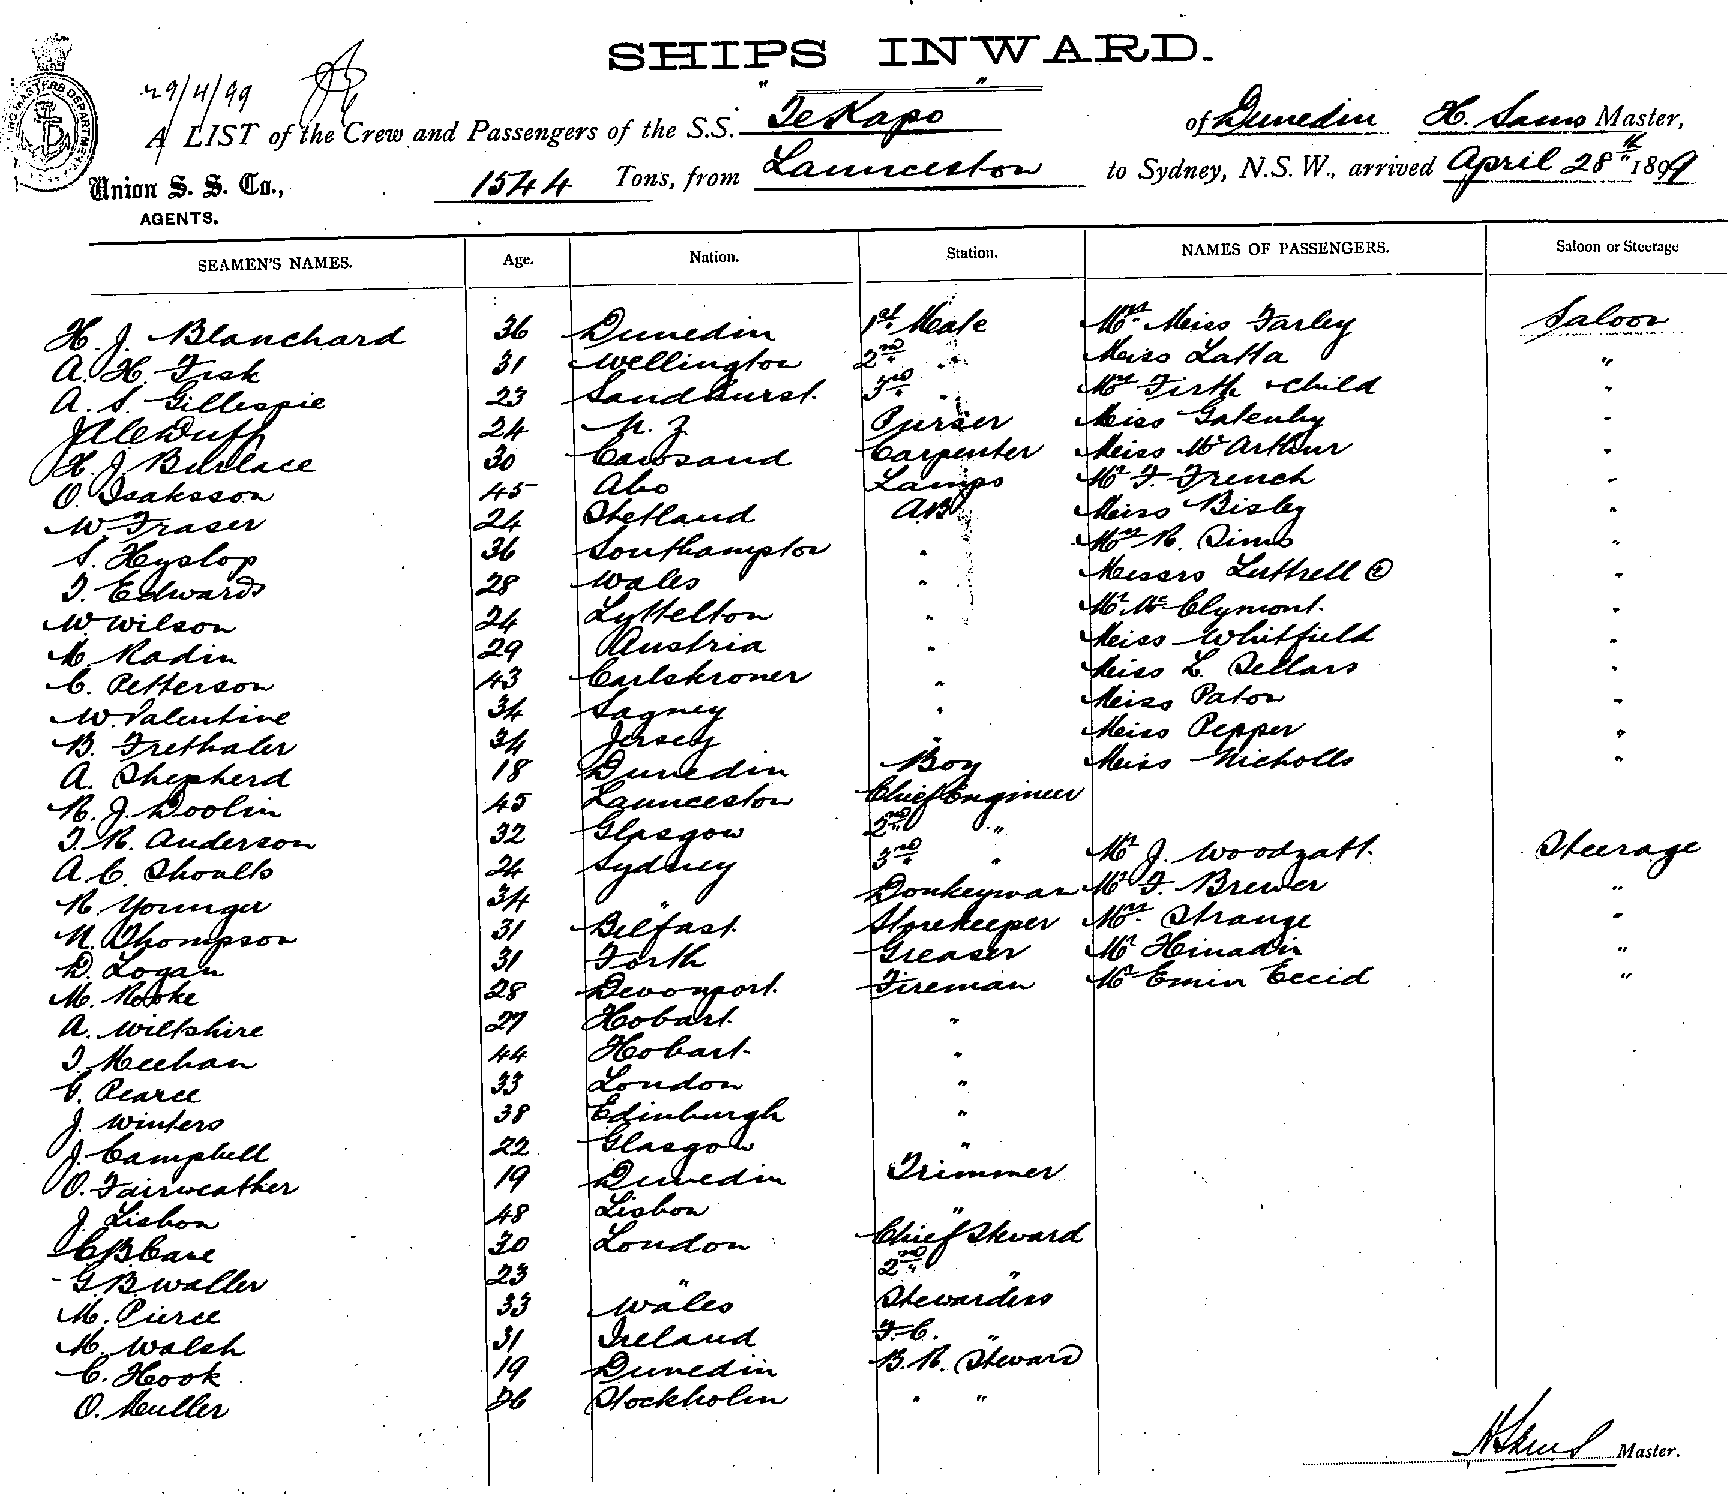 SHIPS INWARD.
29/4/99
A LIST of the Crew and Passengers of the S.S. " TeKapo " of Dunedin H. Sams Master,
Union S. S. Co., AGENTS. 1544 Tons, from Launceston to Sydney, N.S.W., arrived April 28th 1899
SEAMEN'S NAMES. Age. Nation. Station. NAMES OF PASSENGERS. Saloon or Steerage
H. J. Blanchard 36 Dunedin 1st Mate Mrs Miss Farley Saloon
A. H. Fisk 31 Wellington 2nd " Miss Latta "
A. S. Gillespie 23 Sandhurst. 3rd " Mrs Firth & Child "
J A C Duff 24 N. Z Purser Miss Gatenby "
H. J. Burlace 30 Cawsand Carpenter Miss McArthur "
O. Isaksson 45 Abo Lamps Mr F. French "
W. Fraser 24 Shetland AB Miss Bisley "
S. Hyslop 36 Southampton " Mrs R. Sims "
T. Edwards 28 Wales " Messrs Luttrell (2) "
W. Wilson 24 Lyttelton " Mr McClymont. "
M. Radin 29 Austria " Miss Whitfield "
C. Petterson 43 Carlskroner " Miss L. Sellars "
W. Valentine 34 Sagney " Miss Paton "
B. Frethaler 34 Jersey " Miss Pepper "
A. Shepherd 18 Dunedin Boy Miss Nicholls "
R. J. Doolin 45 Launceston Chief Engineer
T. R. Anderson 32 Glasgow 2nd "
A. C. Shoults 24 Sydney 3rd " Mr J. Woodgatt. Steerage
R. Younger 34 " Donkeyman Mr F. Brewer "
N. Thompson 31 Belfast. Storekeeper Mrs Strange "
D. Logan 31 Forth Greaser Mr Hinadin "
M. Rooke 28 Devonport. Fireman Mr Emin Eccid "
A. Wiltshire 27 Hobart. "
T. Meehan 44 Hobart. "
G. Pearce 33 London "
J. Winters 38 Edinburgh "
J. Campbell 22 Glasgow "
O. Fairweather 19 Dunedin Trimmer
J. Lisbon 48 Lisbon "
C B Case 30 London Chief Steward
G. B. Waller 23 " 2nd "
M. Pierce 33 Wales Stewardess
M. Walsh 31 Ireland F.C. "
C. Hook 19 Dunedin B. R. Steward
O. Muller 26 Stockholm " "
H Sams Master.